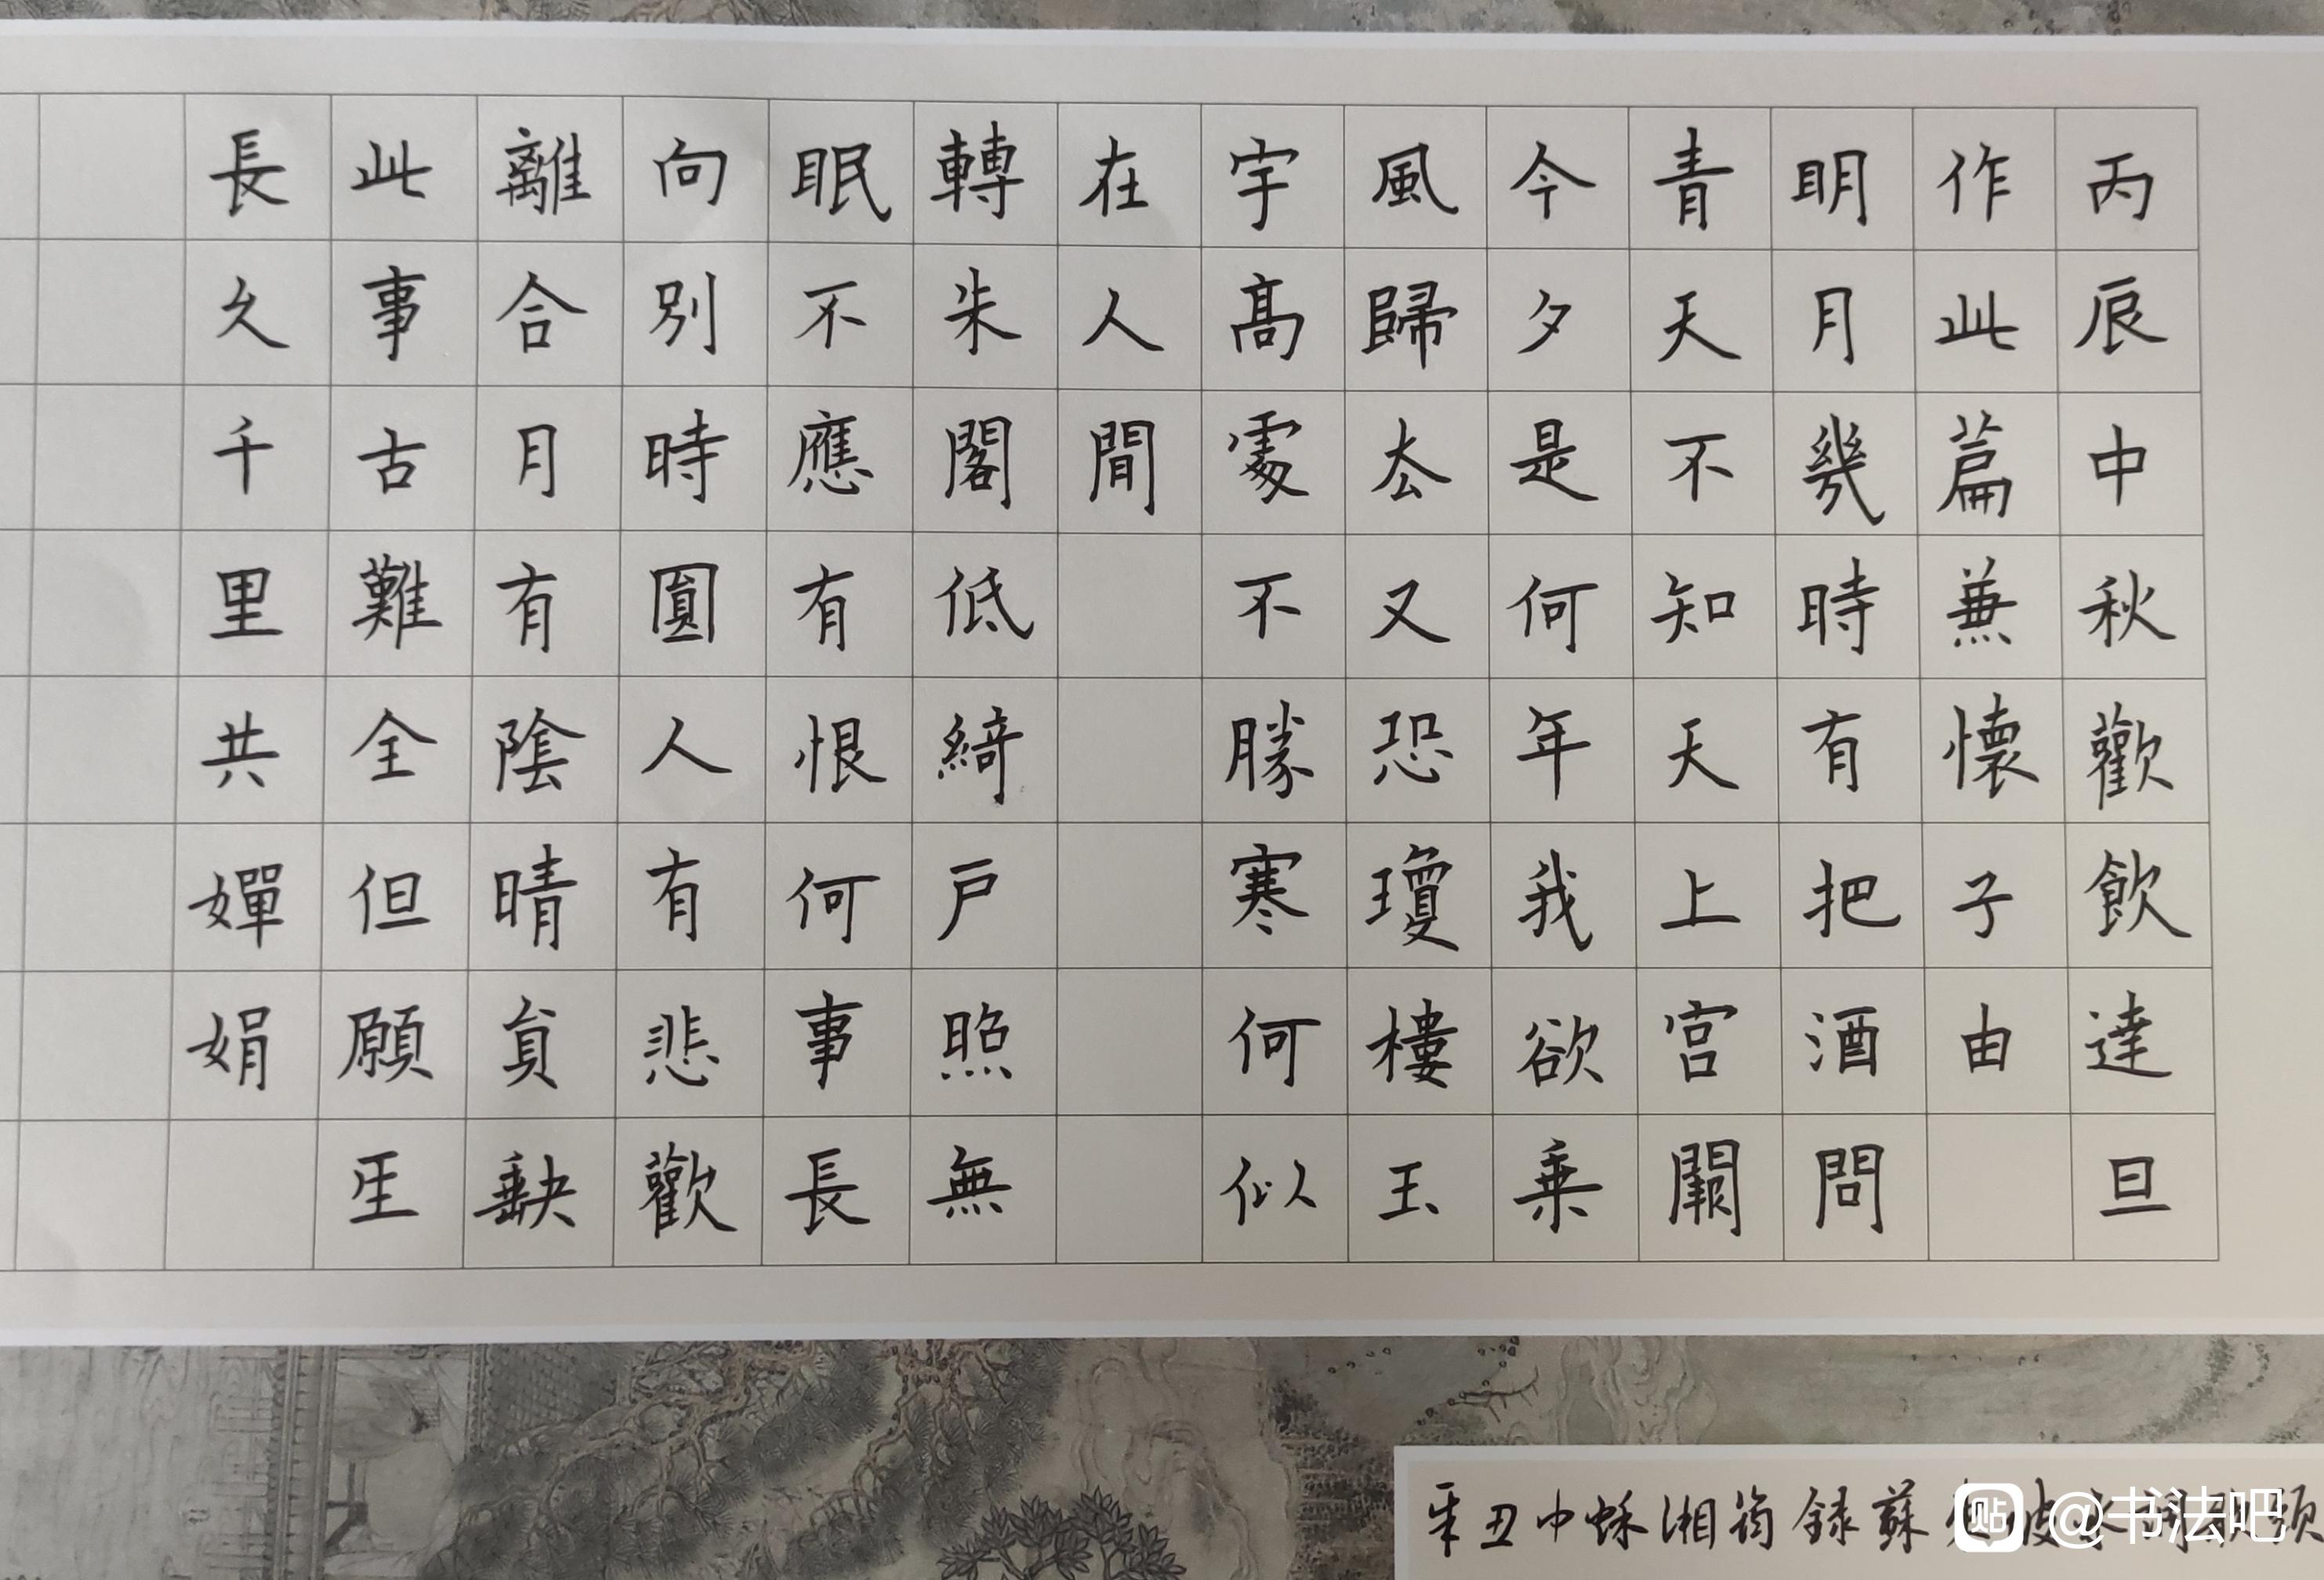 丙辰中秋歡飲達旦
作此篇兼懷子由
明月幾時有把酒問
青天不知天上宮闕
今夕是何年我欲乗
風歸去又恐瓊樓玉
宇髙處不勝寒何似
在人間
轉朱閣低綺戶照無
眠不應有恨何事長
向別時圓人有悲歡
離合月有陰晴貟缺
此事古難全但願𤯔
長久千里共嬋娟
辛丑中秌湘筠録蘇
贴 @书法吧